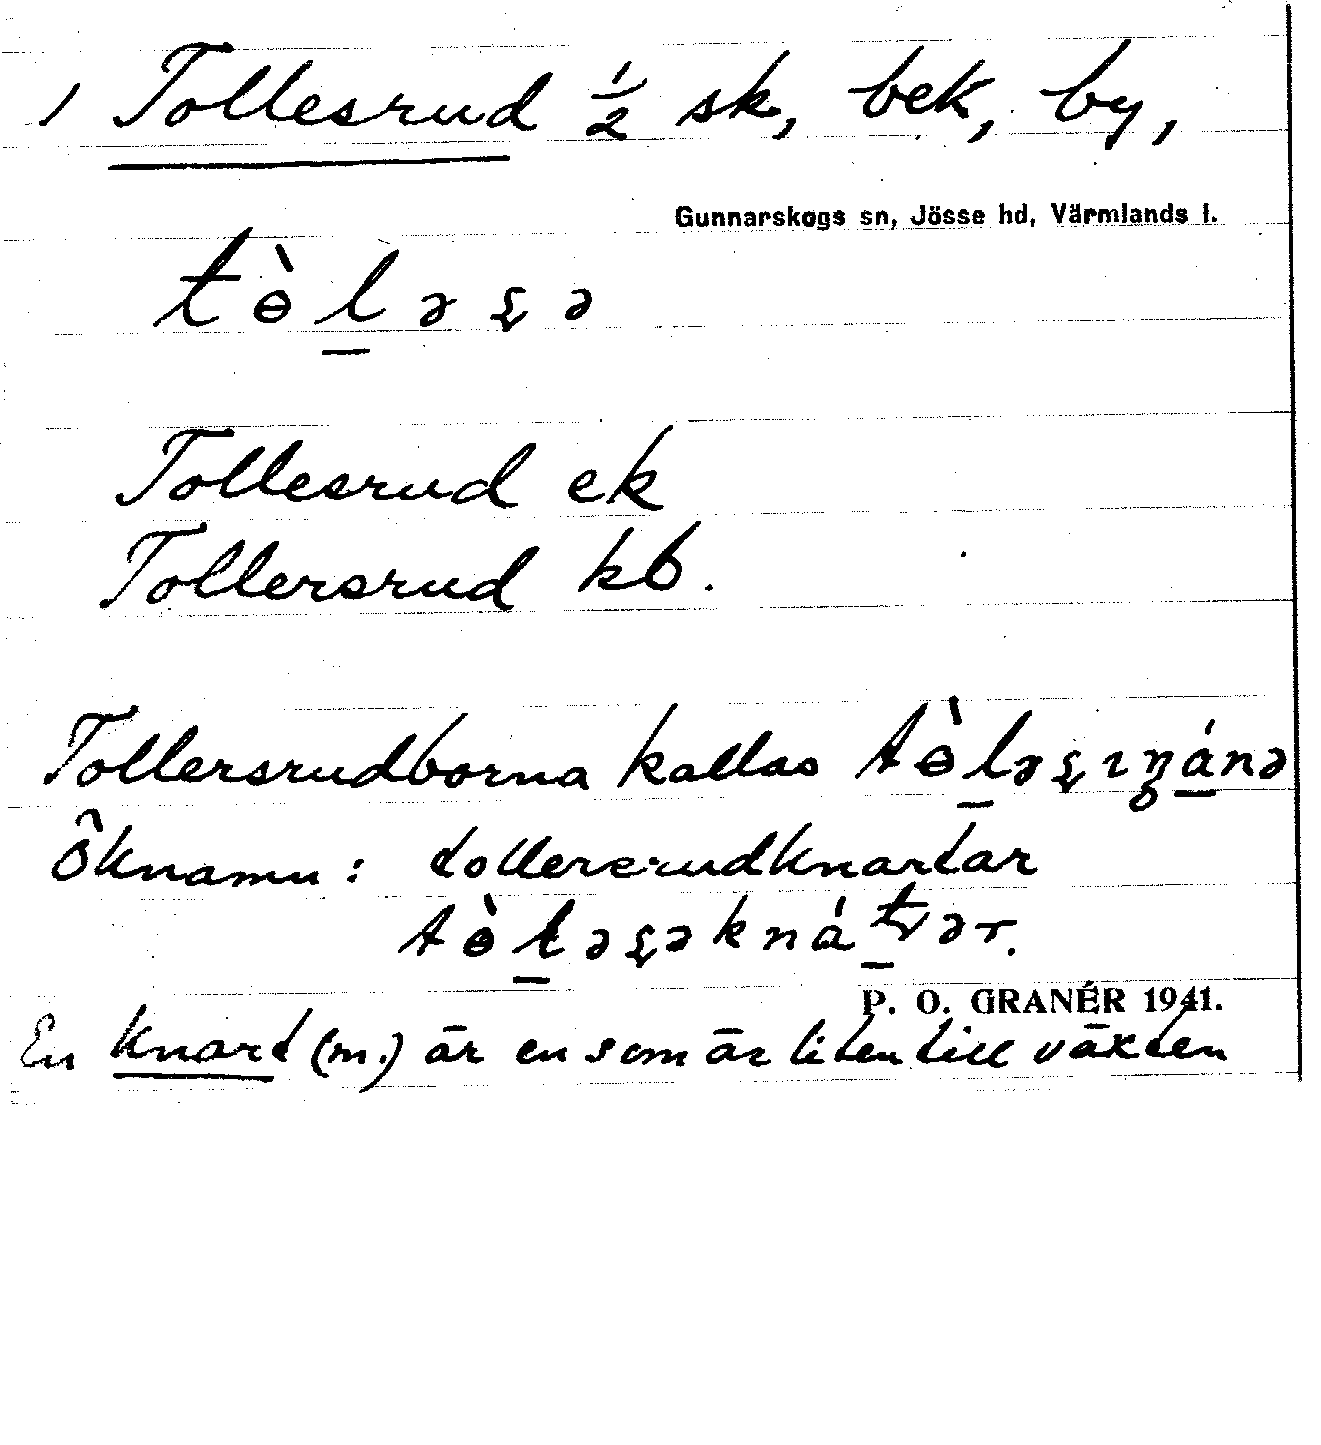 1 Tollesrud ½ sk, bek, by,
Gunnarskogs sn, Jösse hd, Värmlands l.
tɵ̀l̠əʂə
Tollesrud ek
Tollersrud kb.
Tollersrudborna kallas tɵ̀l̠əʂɪŋánə
Öknamn: tollersrudknartar
tɵ̀l̠əʂəkná̠ʈər.
P. O. GRANÉR 1941.
En knart (m.) är en som är liten till växten